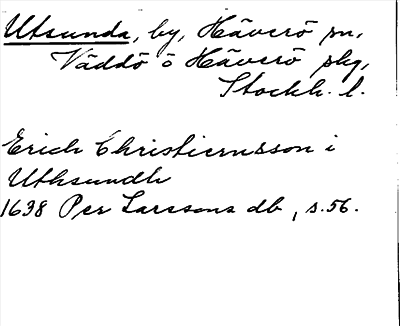 Utsunda, by, Häverö sn,
Väddö o Häverö skg,
Stockh. l.
Erich Christiernsson i
Uthsundh
1638 Per Larssons db, s. 56.